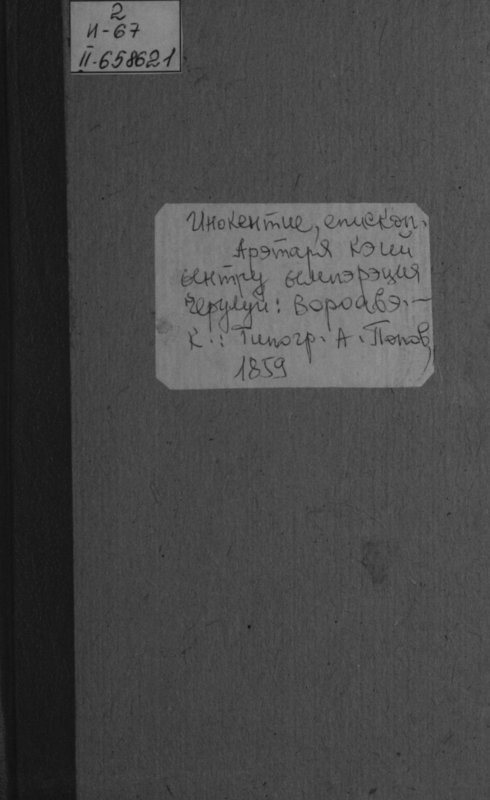 2
И-67
II-658621
Инокентие, епископ.
Арэтаря кэий
ынтру ымпэрэция
черулуй: Вороавэ.-
К.: Типогр. А. Попов,
1859